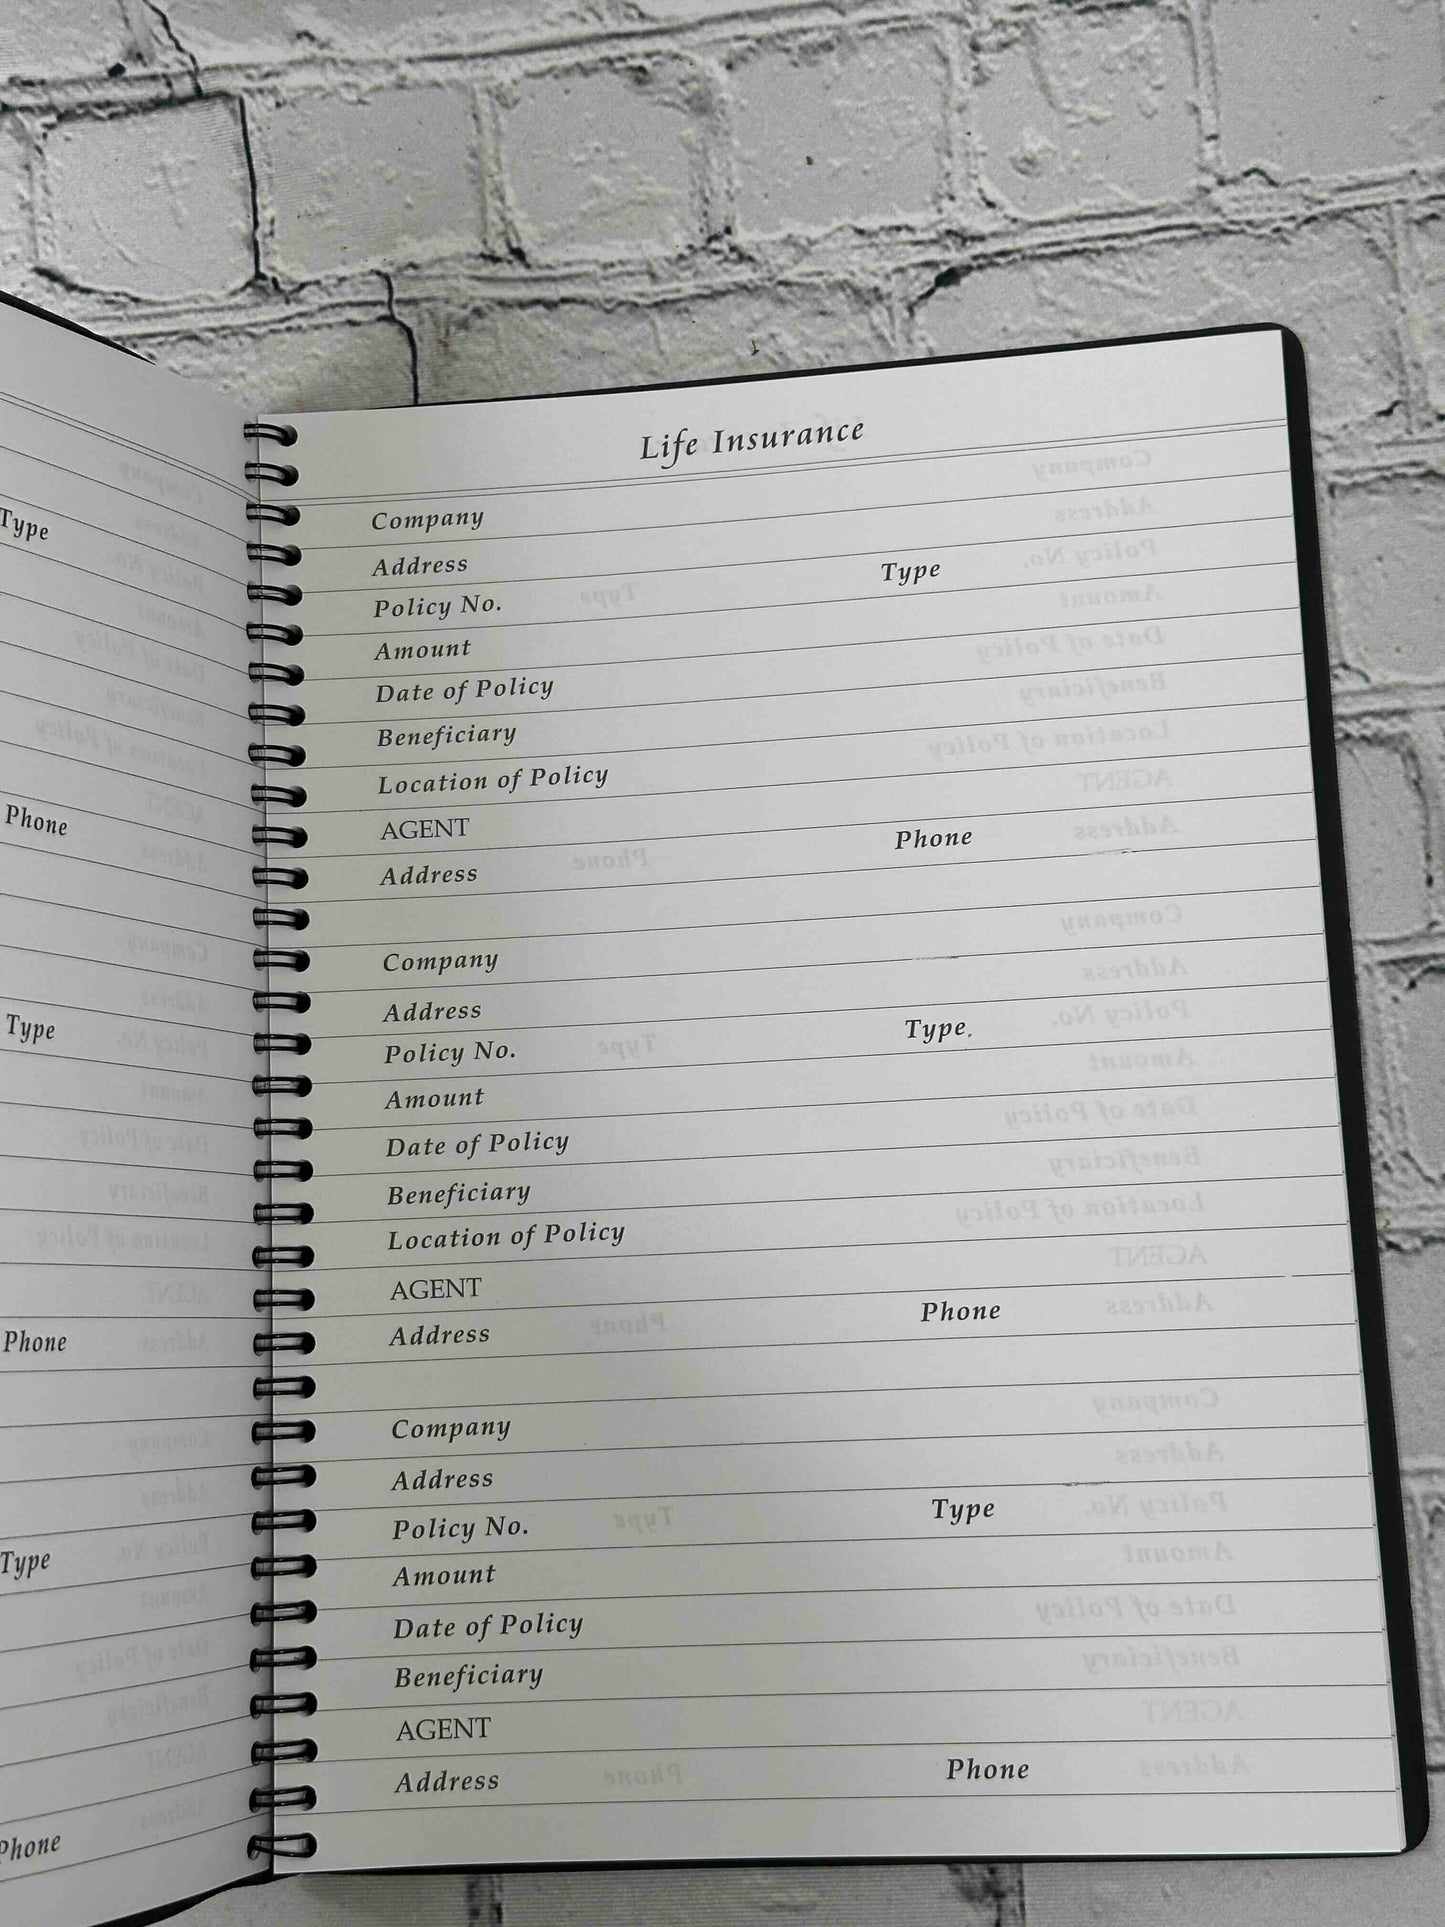 Type
Phone
Type
Phone
Type
Phone
Life Insurance
Company
Address
Policy No. Type
Amount
Date of Policy
Beneficiary
Location of Policy
AGENT Phone
Address
Company
Address
Policy No. Type
Amount
Date of Policy
Beneficiary
Location of Policy
AGENT Phone
Address
Company
Address
Policy No. Type
Amount
Date of Policy
Beneficiary
AGENT
Address Phone